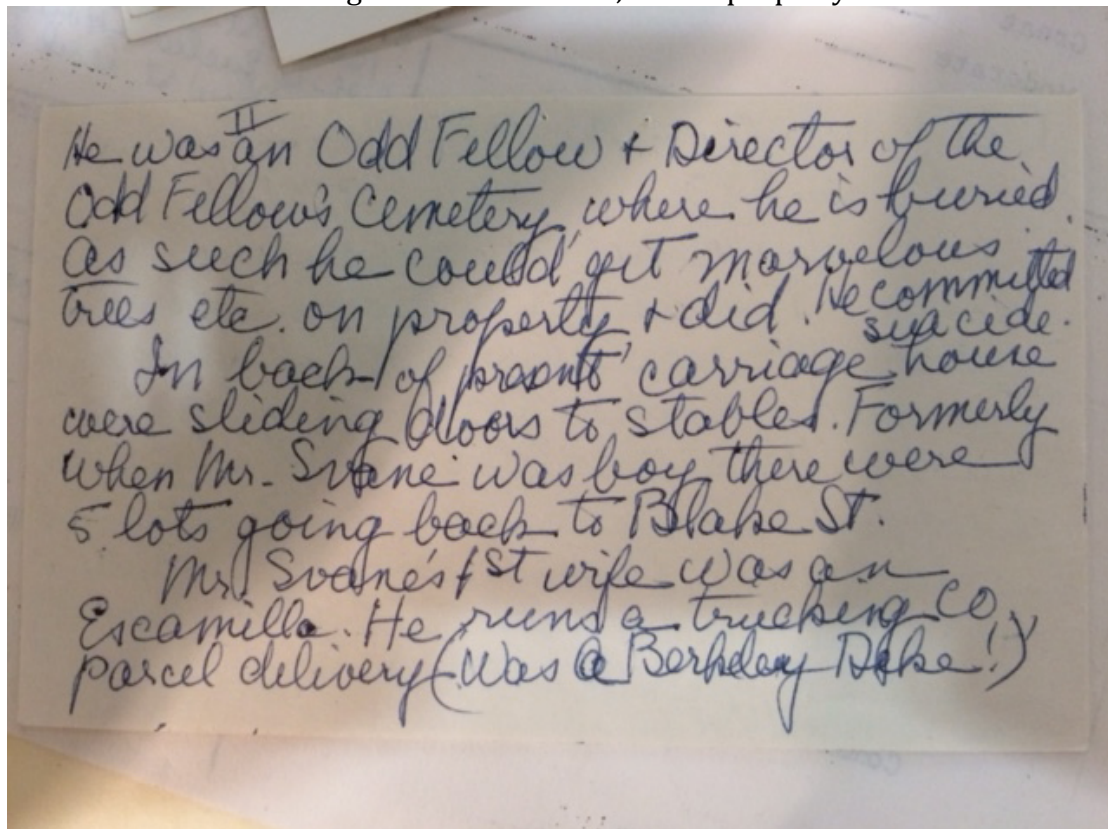 II
He was an Odd Fellow + Director of the
Odd Fellow's Cemetery, where he is buried.
As such he could get marvelous
trees etc. on property + did. He committed
suicide.
In back of present carriage house
were sliding doors to stables. Formerly
when Mr. Svane was boy there were
5 lots going back to Blake St.
Mr. Svane's 1st wife was an
Escamilla. He runs a trucking Co,
parcel delivery (Was a Berkeley !)